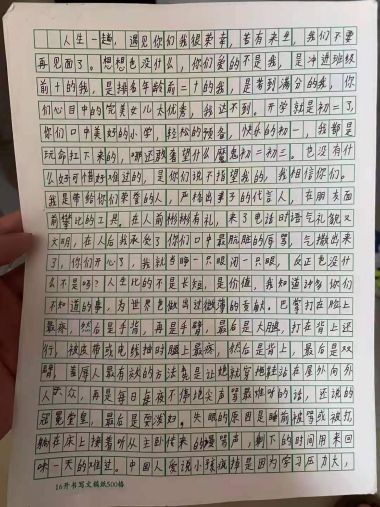 人生一趟，遇见你们我很荣幸，若有来生，我们不要
再见面了。想想也没什么，你们爱的不是我，是冲进班级
前十的我，是排名年龄前二十的我，是考到满分的我。你
们心目中的完美女儿太优秀，我达不到。开学就是初二了，
你们口中美好的小学，轻松的预备，快乐的初一，我都是
玩命扛下来的，哪还敢奢望什么魔鬼初二初三。也没有什
么好可惜好难过的，是你们说不指望我的，我相信你们。
我是带给你们荣誉的人，严格出妻子的代言人，在朋友面
前攀比的工具。在人前彬彬有礼，来了电话时语气礼貌又
文明，在人后我承受了你们口中最肮脏的辱骂，气撒出来
了，你们开心了，我就当睁一只眼闭一只眼，反正也没什
么不是吗？人生比的不是长短，是价值，我知道许多你们
不知道的事，为世界也做出过微薄的贡献。巴掌打在脸上
最疼，然后是手指，再是手臂，最后是大腿，打在背上还
行，被皮带或电线抽时腿上最疼，然后是背上，最后是双
臂，羞辱人最有效的方法莫是让她就穿拖鞋站在屋外向外
人 众，再是每日昼夜不停地尖声骂最难听的话，还说的
冠冕堂皇，最后是耍泼妇。失眠的原因是睡前被骂或被打，
躺在床上接着听从主卧传来的 骂声，剩下的时间用来回
味一天的难过。中国人爱说小孩疯掉是因为学习压力大，
16开书写文稿纸500格